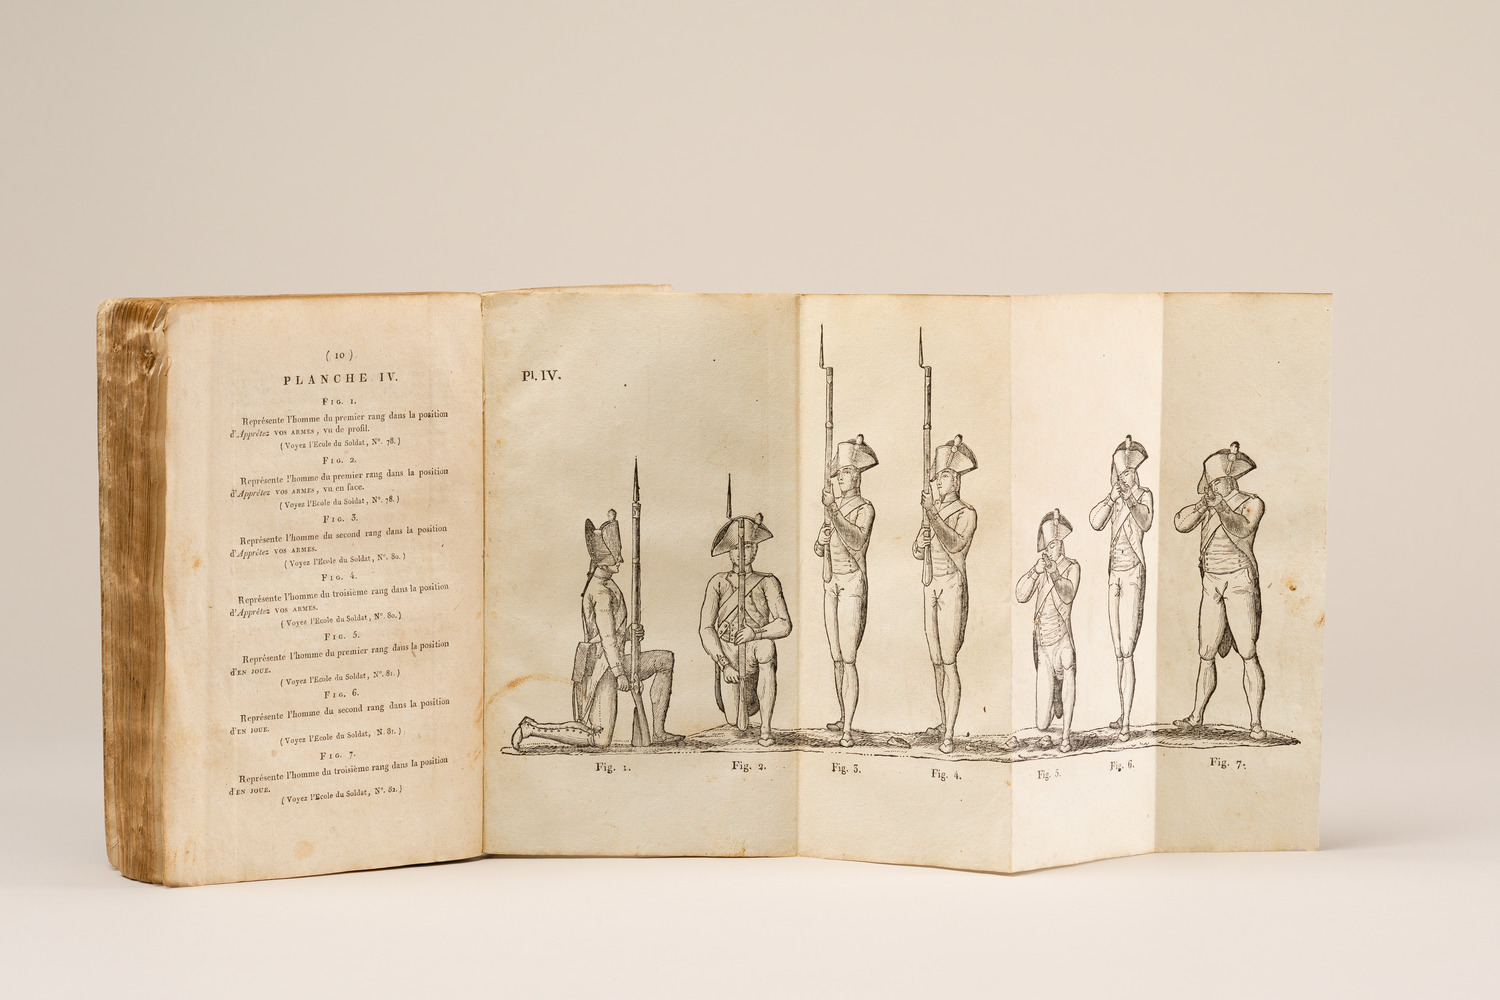 ( 10 )
PLANCHE IV.
FIG. 1.
Représente l'homme du premier rang dans la position
d'Apprêtez VOS ARMES, vu de profil.
(Voyez l'Ecole du Soldat, N°. 78.)
FIG. 2.
Représente l'homme du premier rang dans la position
d'Apprêtez VOS ARMES, vu en face.
(Voyez l'Ecole du Soldat, N°. 78.)
FIG. 3.
Représente l'homme du second rang dans la position
d'Apprêtez VOS ARMES.
(Voyez l'Ecole du Soldat, N°. 80.)
FIG. 4.
Représente l'homme du troisième rang dans la position
d'Apprêtez VOS ARMES.
(Voyez l'Ecole du Soldat, N°. 80.)
FIG. 5.
Représente l'homme du premier rang dans la position
d'EN JOUE.
(Voyez l'Ecole du Soldat, N°. 81.)
FIG. 6.
Représente l'homme du second rang dans la position
d'EN JOUE.
(Voyez l'Ecole du Soldat, N. 81.)
FIG. 7.
Représente l'homme du troisième rang dans la position
d'EN JOUE.
(Voyez l'Ecole du Soldat, N°. 82.)
Pl. IV.
Fig. 1.
Fig. 2.
Fig. 3.
Fig. 4.
Fig. 5.
Fig. 6.
Fig. 7.